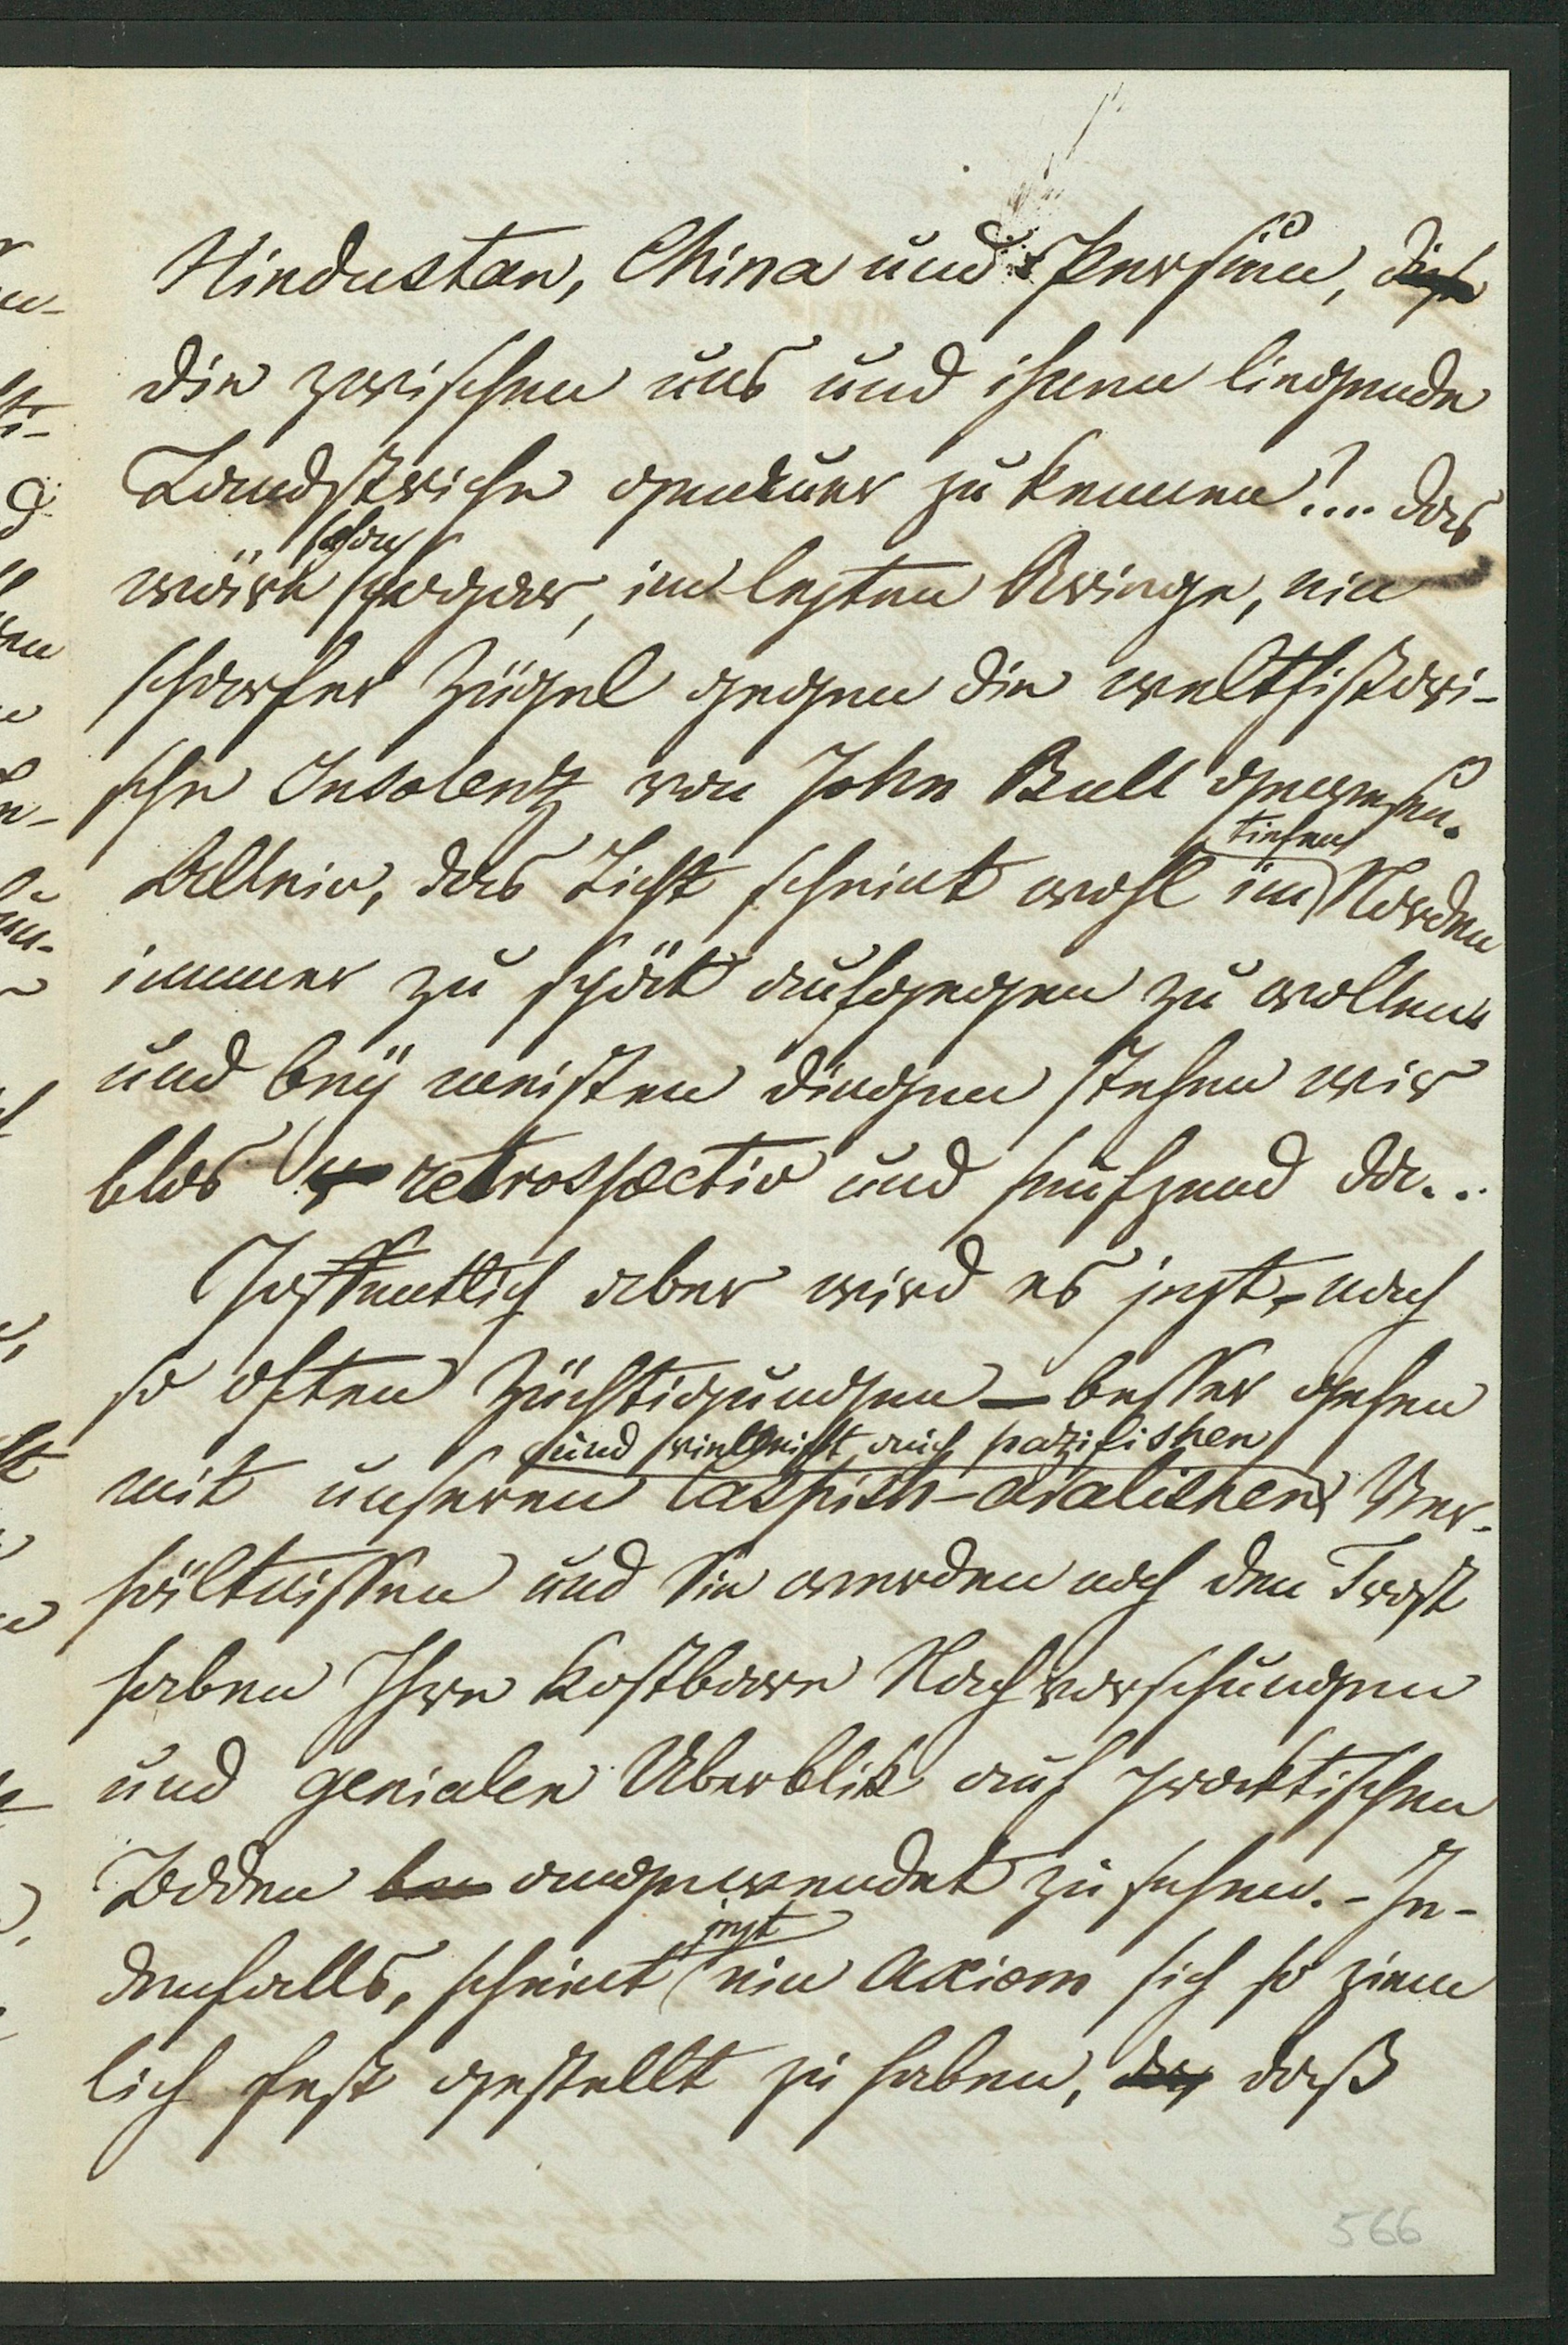 Hindustan, China und Persien, diese
die zwischen uns und ihnen liegende
Landstriche genauer zu kennen!... das
schon
wäre sogar, im letzten Kriege, ein
scharfer Zügel gegen die welthistori-
sche Insolentz von John Bull gewesen.
tiefen
Allein, das Licht scheint wohl im Norden
immer zu spät aufgegen zu wollen
und beÿ meisten dingen stehen wir
blos retrospectiv und seufzend da...
Hoffentlich aber wird es jezt, nach
so often Züchtigungen – besser gehen
und vielleicht auch pazifishen
mit unseren Caspish-aralishen Ver-
hältnissen und Sie werden noch den Trost
haben Ihre kostbare Nachvorschungen
und genialen Überblik auf practischen
Boden angewendet zu sehen. – Je-
jezt
denfalls, scheint ein Axiom sich so ziem
lich fest gestellt zu haben, daß
566